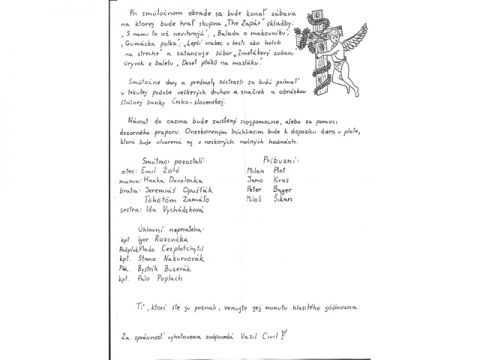 Pri smútočnom obrade sa bude konať zábava
na ktorej bude hrať skupina „The Zapár" skladby:
„S nami to už nevihrajú", „Balada o makovníku",
„Gumácka polka", „Lepší vrabec v hrsti ako holub
na streche" a zatancuje súbor „Zmeťákový zobani
úryvok z baletu „Deseť ptákú na masláku".
Smútočné dary a predmety sústrasti sa budú prímať
v tekutej podobe veškerých druhov a značiek a obrázkov
štátnej banky Česko-slovenskej.
Návrat do cazma bude zaistený svojpomocne, alebo za pomoci
dozorného praporu. Oneskoreným trúchliacim bude k dispozícii diera v plote,
ktorá bude otvorená aj v neskorých nočných hodinách.
Smútiaci pozostalí:
Príbuzní:
otec: Emil Žold
Milan Plot
mama: Hanka Dovolenka
Jano Kvas
bratia: Jeremiáš Opušťák
Peter Bager
Tichotom Zamálo
Miloš Šikan
sestra: Ida Vychádzková
Úhlavní nepriatelia:
kpt. Igor Rozcvička
Vlado Cezplotchytil
kpt. Stano Nakurvovák
Bystrík Buzerák
kpt. Palo Poplach
Tí, ktorí ste ju poznali, venujte jej minútu hlasitého
Za správnosť vyhotovenia zodpovedá Vasil Civil!